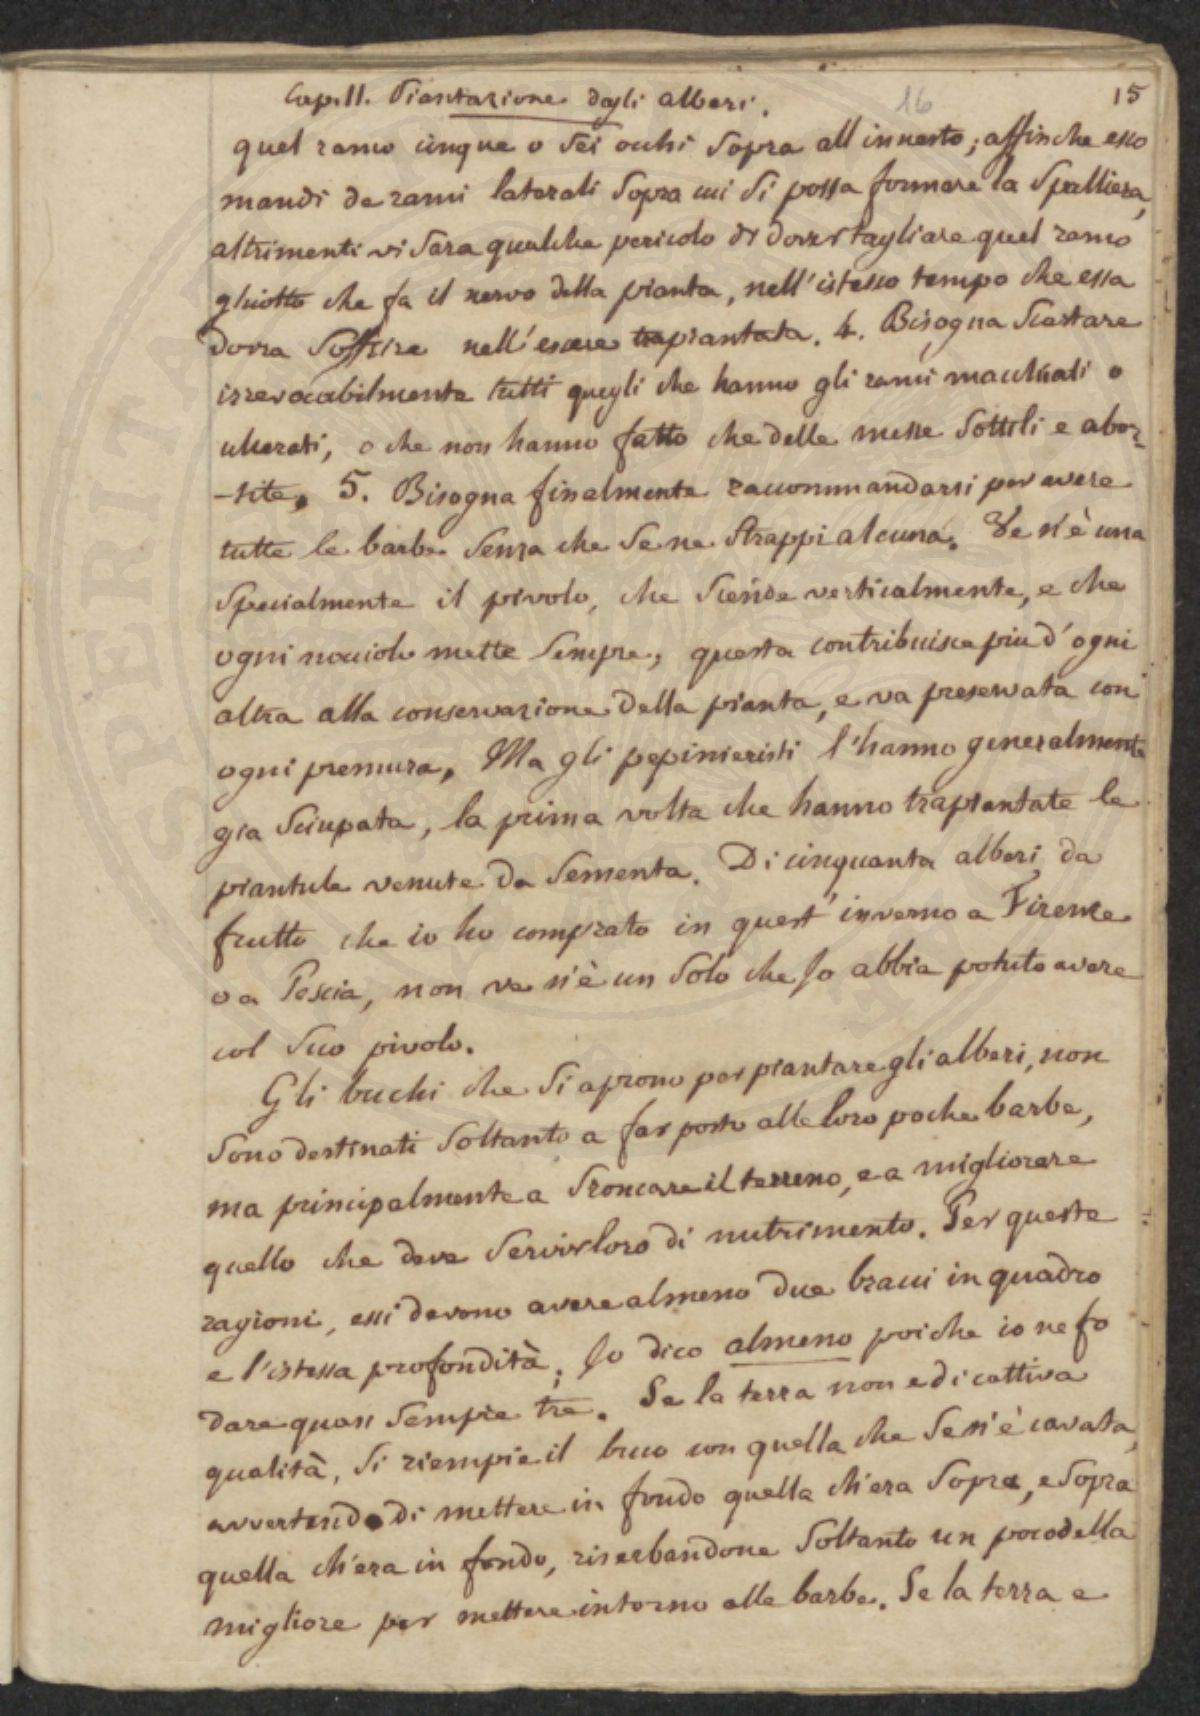 Cap. II. Piantazione degli alberi. 16 15
quel ramo cinque o sei occhi sopra all'innesto; affinche esso
mandi de rami laterali sopra cui si possa formare la spalliera,
altrimenti vi sara qualche pericolo di dover tagliare quel ramo
ghiotto che fa il nervo della pianta, nell'istesso tempo che essa
dovra soffrire nell'essere trapiantata. 4. Bisogna scartare
irrevocabilmente tutti quegli che hanno gli rami macchiati o
ulcerati, o che non hanno fatto che delle messe sottili e abor-
-tite. 5. Bisogna finalmente raccommandarsi per avere
tutte le barbe senza che se ne strappi alcuna. Ve n'è una
specialmente il pivolo, che scende verticalmente, e che
ogni nocciolo mette sempre, questa contribuisce piu d'ogni
altra alla conservazione della pianta, e va preservata con
ogni premura. Ma gli pepinieristi l'hanno generalmente
gia sciupata, la prima volta che hanno trapiantate le
piantule venute da sementa. Di cinquanta alberi da
frutto che io ho comprato in quest'inverno a Firenze
o a Pescia, non ve n'è un solo che Io abbia potuto avere
col suo pivolo.
Gli buchi che si aprono per piantare gli alberi, non
sono destinati soltanto a far posto alle loro poche barbe,
ma principalmente a stroncare il terreno, e a migliorare
quello che deve servir loro di nutrimento. Per queste
ragioni, essi devono avere almeno due bracci in quadro
e l'istessa profondità; Io dico almeno poiche io ne fo
dare quasi sempre tre. Se la terra non e di cattiva
qualità, si riempie il buco con quella che se n'è cavata,
avvertendo di mettere in fondo quella ch'era sopra, e sopra
quella ch'era in fondo, riserbandone soltanto un poco della
migliore per mettere intorno alle barbe. Se la terra e